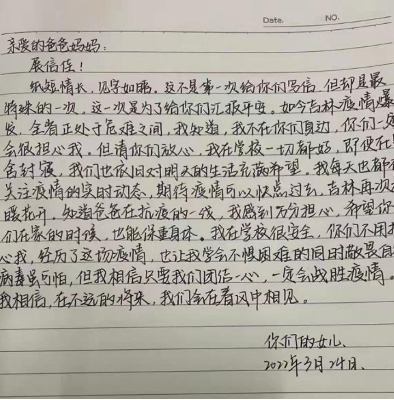 Date. NO.
亲爱的爸爸妈妈:
展信佳!
纸短情长,见字如晤。这不是第一次给你们写信,但却是最
特殊的一次。这一次是为了给你们汇报平安。如今吉林疫情爆
发,全省正处于危难之间,我知道,我不在你们身边,你们一定
会很担心我。但请你们放心,我在学校一切都好,即使在
舍封寝,我们也依旧对明天的生活充满希望。我每天也都
关注疫情的实时动态,期待疫情可以快点过去,吉林再次
暖花开。知道爸爸在抗疫的一线,我感到万分担心,希望你
们在家的时候,也能保重身体。我在学校很安全,你们不用担
心我,经历了这场疫情,也让我学会不惧困难的同时敬畏自
病毒虽可怕,但我相信只要我们团结一心,一定会战胜疫情。
我相信,在不远的将来,我们会在春风中相见。
你们的女儿、
2022年3月24日、